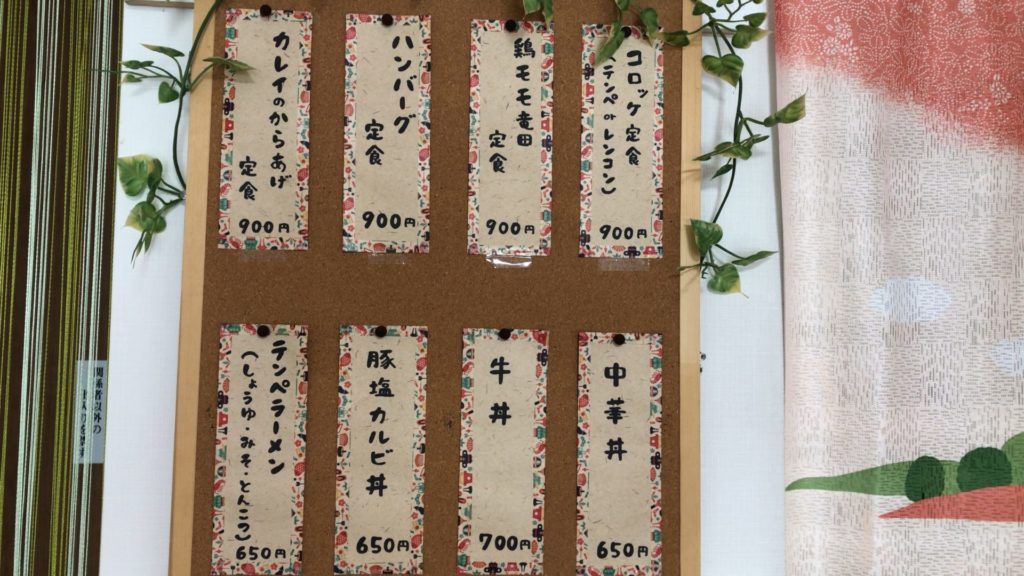 コロッケ定食
(テンペorレンコン)
900円
鶏モモ竜田
定食
900円
ハンバーグ
定食
900円
カレイのからあげ
定食
900円
中華丼
650円
牛丼
700円
豚塩カルビ丼
650円
テンペラーメン
(しょうゆ・みそ・とんこつ)
650円
関係者以外の